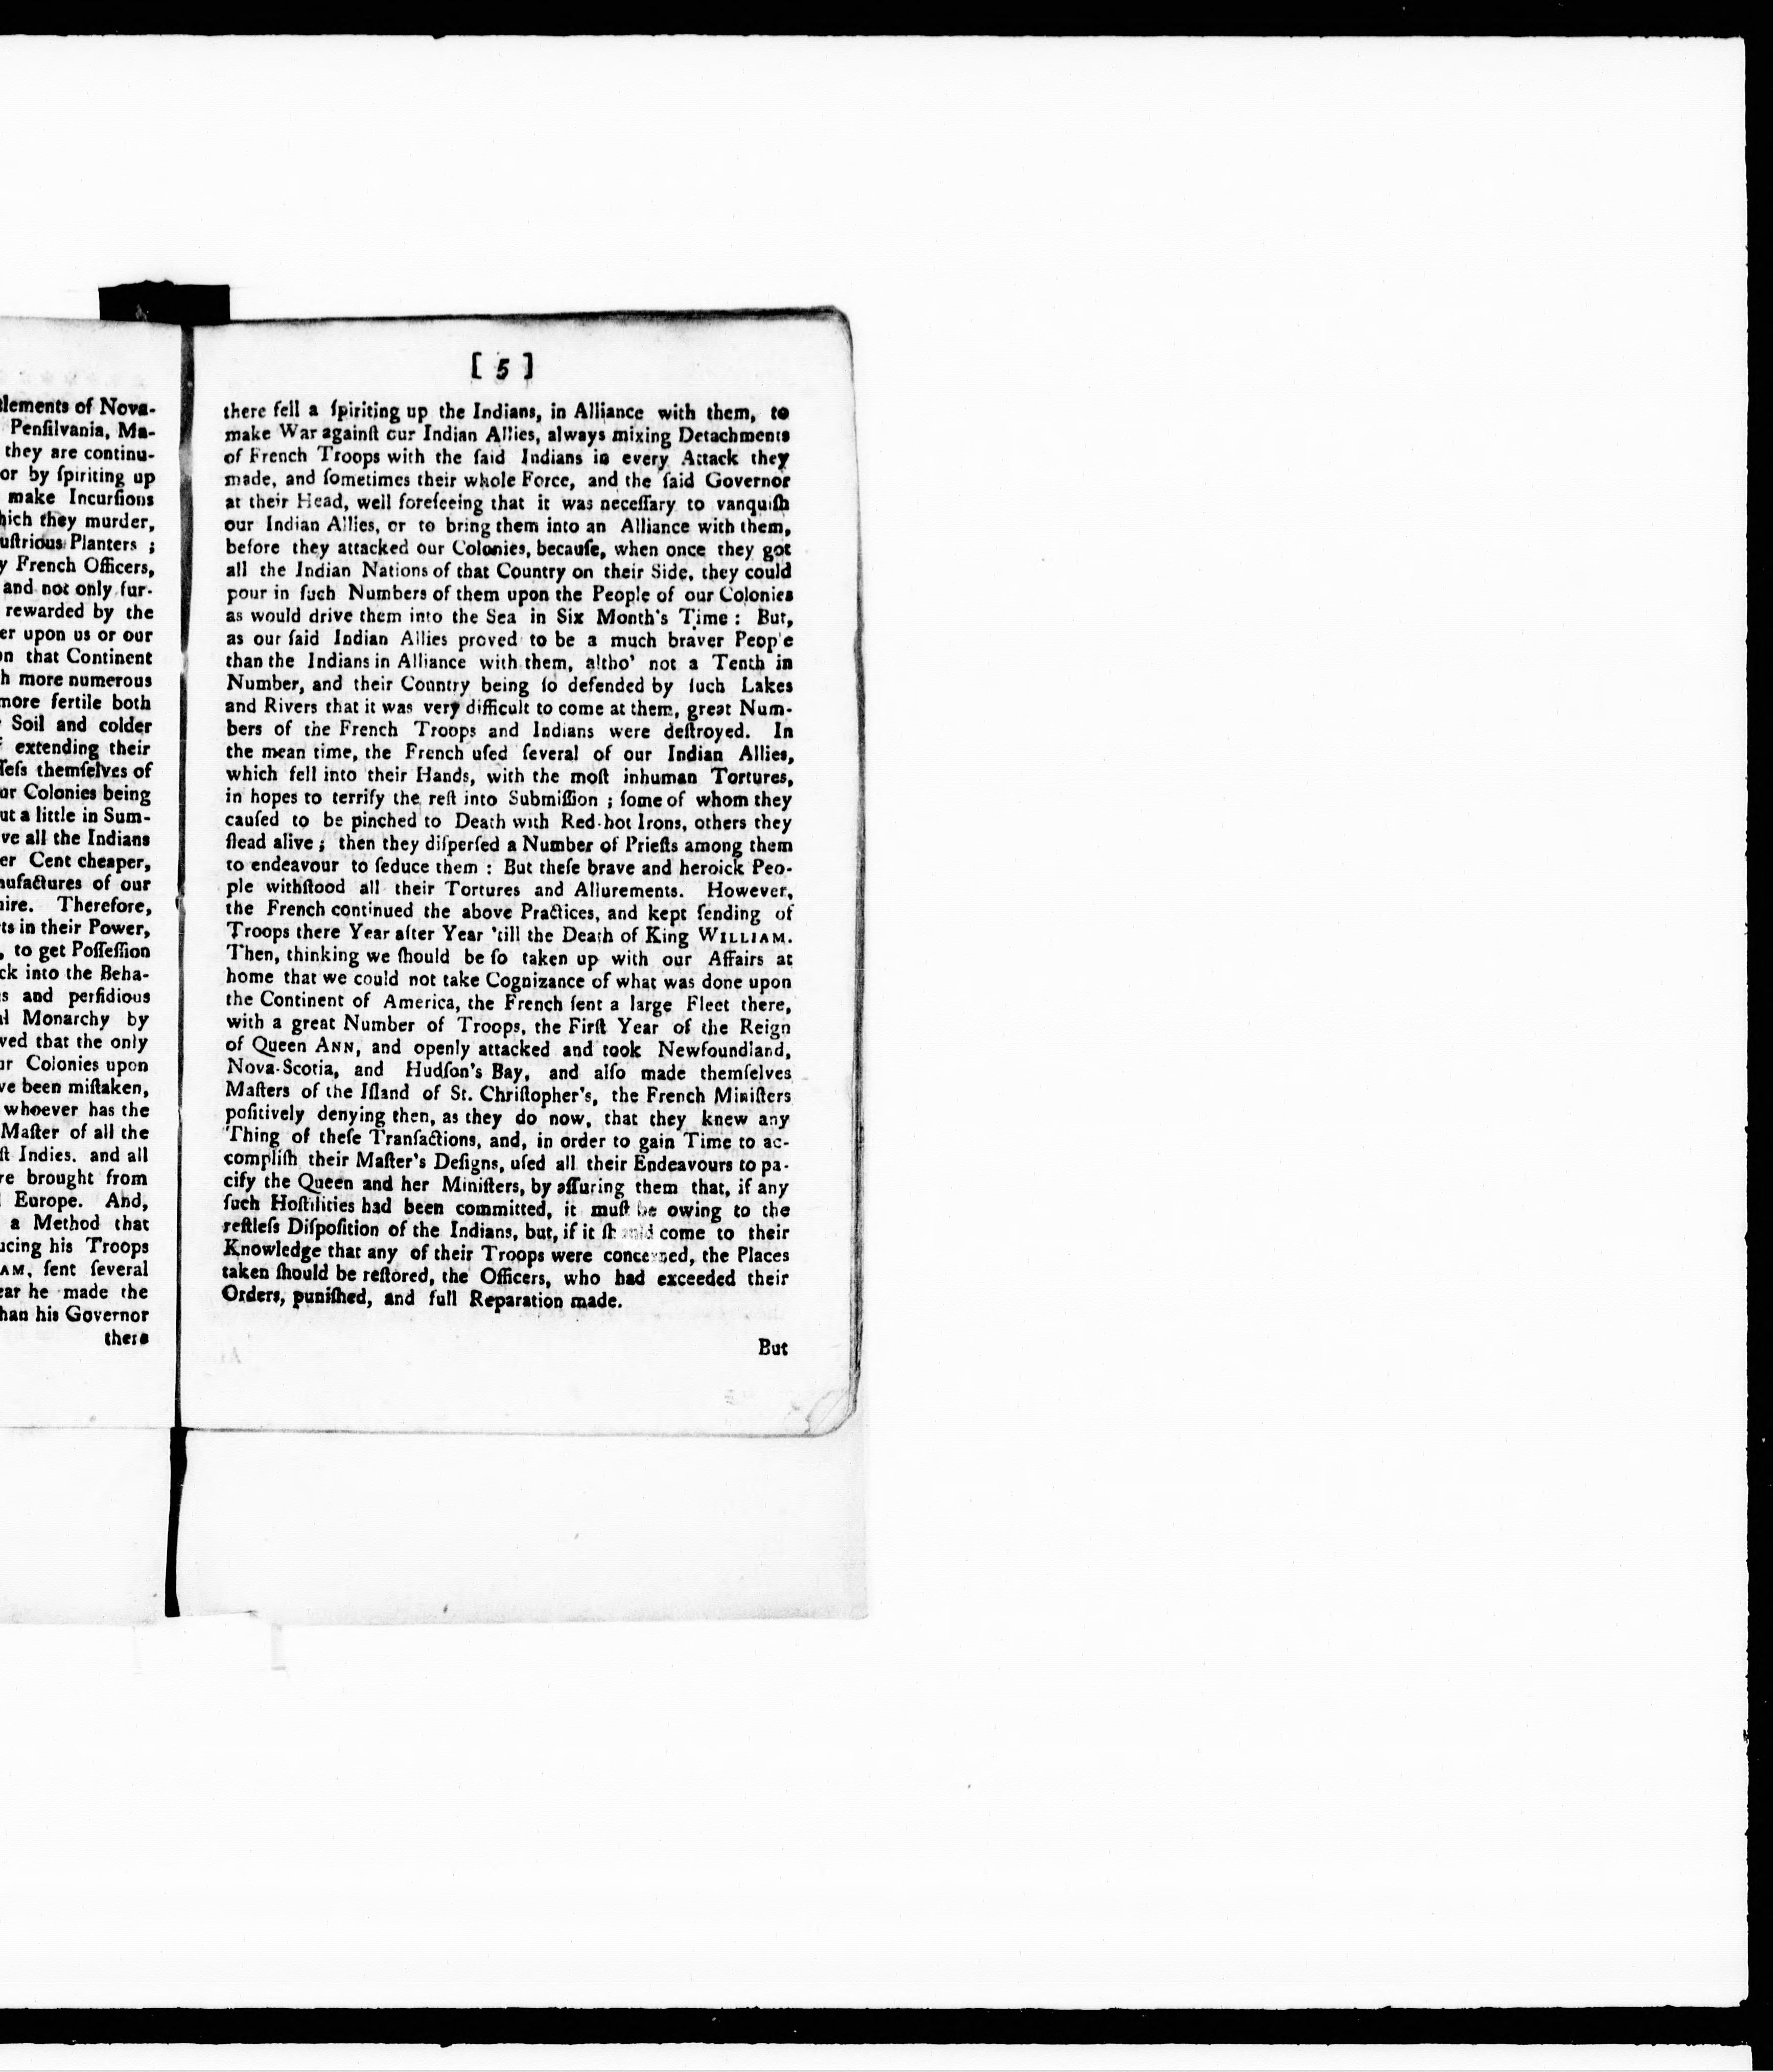 tlements of Nova-
Penſilvania, Ma-
they are continu-
or by ſpiriting up
make Incurſions
hich they murder,
uſtrious Planters ;
y French Officers,
and not only fur-
rewarded by the
er upon us or our
on that Continent
h more numerous
more fertile both
Soil and colder
extending their
ſeſs themſelves of
ur Colonies being
ut a little in Sum-
ve all the Indians
er Cent cheaper,
nufactures of our
ire. Therefore,
ts in their Power,
, to get Poſſeſſion
ck into the Beha-
s and perfidious
Monarchy by
ved that the only
ur Colonies upon
ve been miſtaken,
whoever has the
Maſter of all the
ſt Indies. and all
re brought from
Europe. And,
a Method that
ucing his Troops
AM, ſent ſeveral
ear he made the
han his Governor
there
[ 5 ]
there fell a ſpiriting up the Indians, in Alliance with them, to
make War againſt our Indian Allies, always mixing Detachments
of French Troops with the ſaid Indians in every Attack they
made, and ſometimes their whole Force, and the ſaid Governor
at their Head, well foreſeeing that it was neceſſary to vanquiſh
our Indian Allies, or to bring them into an Alliance with them,
before they attacked our Colonies, becauſe, when once they got
all the Indian Nations of that Country on their Side, they could
pour in ſuch Numbers of them upon the People of our Colonies
as would drive them into the Sea in Six Month's Time : But,
as our ſaid Indian Allies proved to be a much braver Peop'e
than the Indians in Alliance with them, altho' not a Tenth in
Number, and their Country being ſo defended by ſuch Lakes
and Rivers that it was very difficult to come at them, great Num-
bers of the French Troops and Indians were deſtroyed. In
the mean time, the French uſed ſeveral of our Indian Allies,
which fell into their Hands, with the moſt inhuman Tortures,
in hopes to terrify the reſt into Submiſſion ; ſome of whom they
cauſed to be pinched to Death with Red-hot Irons, others they
flead alive ; then they diſperſed a Number of Prieſts among them
to endeavour to ſeduce them : But theſe brave and heroick Peo-
ple withſtood all their Tortures and Allurements. However,
the French continued the above Practices, and kept ſending of
Troops there Year after Year 'till the Death of King WILLIAM.
Then, thinking we ſhould be ſo taken up with our Affairs at
home that we could not take Cognizance of what was done upon
the Continent of America, the French ſent a large Fleet there,
with a great Number of Troops, the Firſt Year of the Reign
of Queen ANN, and openly attacked and took Newfoundland,
Nova-Scotia, and Hudſon's Bay, and alſo made themſelves
Maſters of the Iſland of St. Chriſtopher's, the French Miniſters
poſitively denying then, as they do now, that they knew any
Thing of theſe Tranſactions, and, in order to gain Time to ac-
compliſh their Maſter's Deſigns, uſed all their Endeavours to pa-
cify the Queen and her Miniſters, by aſſuring them that, if any
ſuch Hoſtilities had been committed, it muſt be owing to the
reſtleſs Diſpoſition of the Indians, but, if it ſhould come to their
Knowledge that any of their Troops were concerned, the Places
taken ſhould be reſtored, the Officers, who had exceeded their
Orders, puniſhed, and full Reparation made.
But